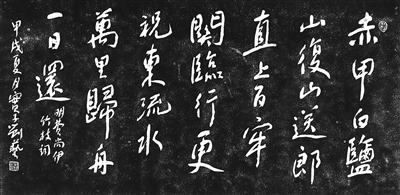 赤甲白鹽
山復山送郎
直上百牢
關臨行更
祝東流水
萬里歸舟
一日還
明黃尚伊
竹枝詞
甲戌夏月